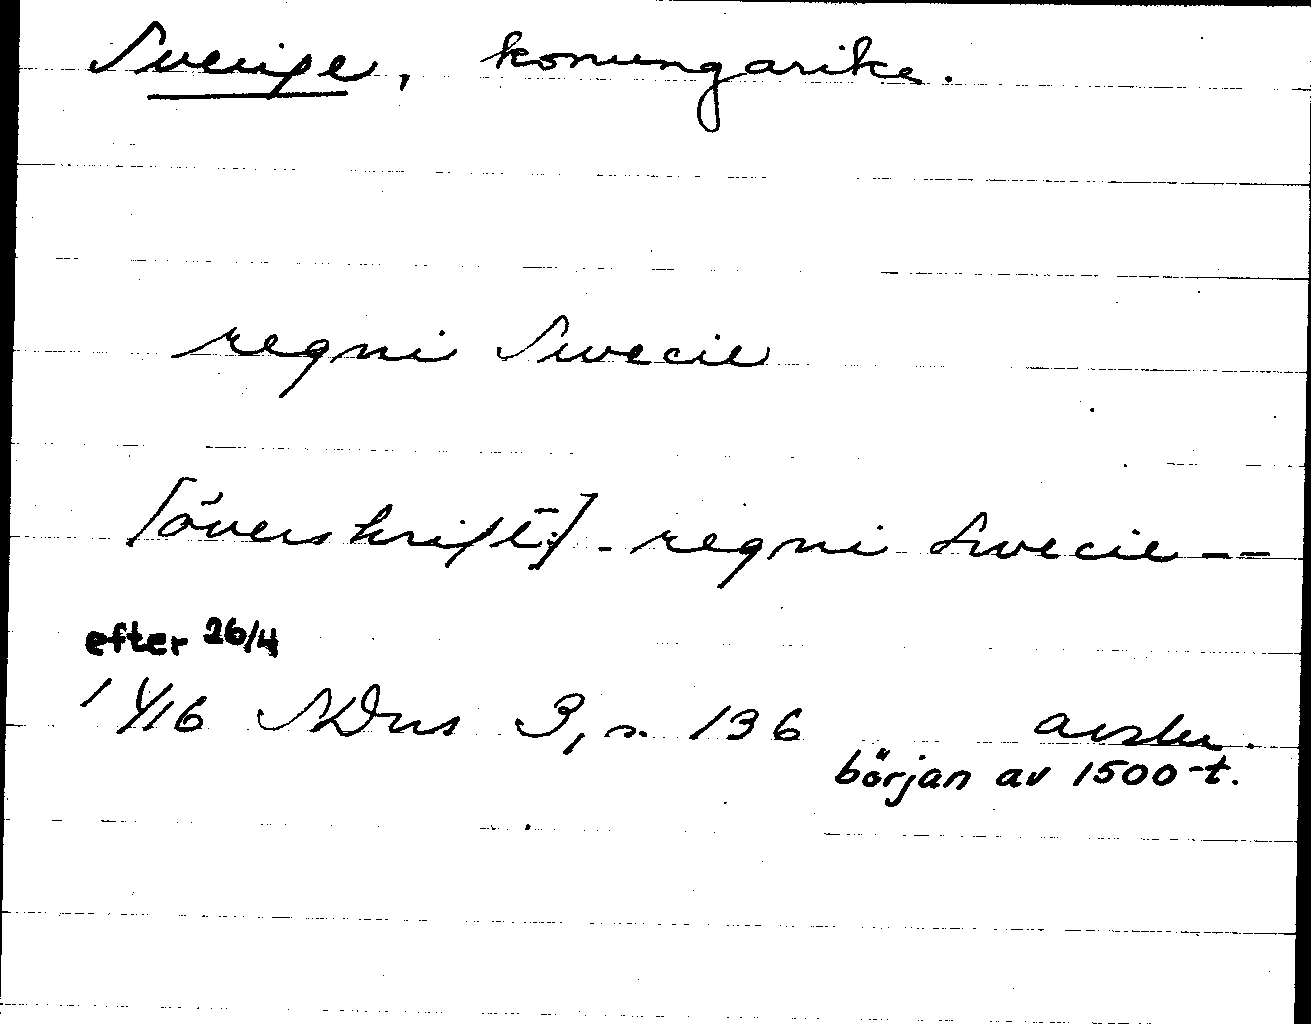 Sverige, konungarike.
regni Swecie
[överskrift:] - regni Swecie --
efter 26/4
1416 SDns 3, s. 136 avskr.
början av 1500-t.